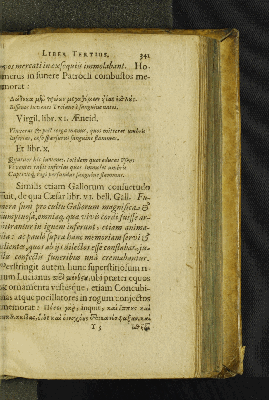 LIBER TERTIVS. 341
pos mercati in exsequiis immolabant. Ho-
merus in funere Patrocli combustos me-
morat:
Virgil. libr. XI. Æneid.
Vinxerat & post terga manus, quos mitteret umbris
Inferias, cæso sparsuros sanguine flammas.
Et libr. x.
Viventes rapit inferias quos immolet umbris
Captivoque rogi perfundat sanguine flammas.
Similis etiam Gallorum consuetudo
fuit, de qua Cæsar libr. VI. bell. Gall. Fu-
nera sunt pro cultu Gallorum magnifica, &
sumptuosa, omniaq. que vivis cordi fuisse ar-
bitrantur in ignem inferunt: etiam anima-
lia: ac paulò supra hanc memoriam servi &
clientes, quos ab iis dilectos esse constabat, iu-
stis confectis funeribus unà cremabantur.
Perstringit autem hunc superstitiosum ri-
tum Lucianus ubi præter equos
& ornamenta vestesque, etiam Concubi-
nas atque pocillatores in rogum conjectos
memorat: